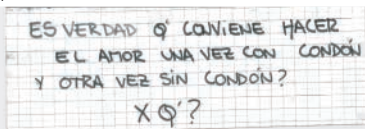 ES VERDAD Q' CONVIENE HACER
EL AMOR UNA VEZ CON CONDÓN
Y OTRA VEZ SIN CONDÓN?
X Q'?